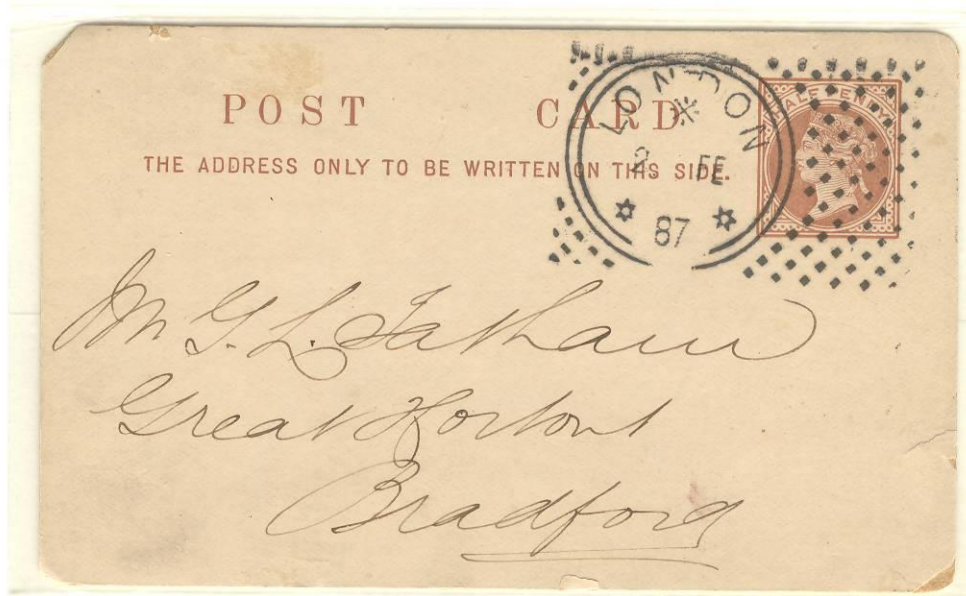 POST CARD
THE ADDRESS ONLY TO BE WRITTEN ON THIS SIDE.
LONDON
2 FE
87
HALF PENNY
Mr G. L. Tatham
Great Horton
Bradford